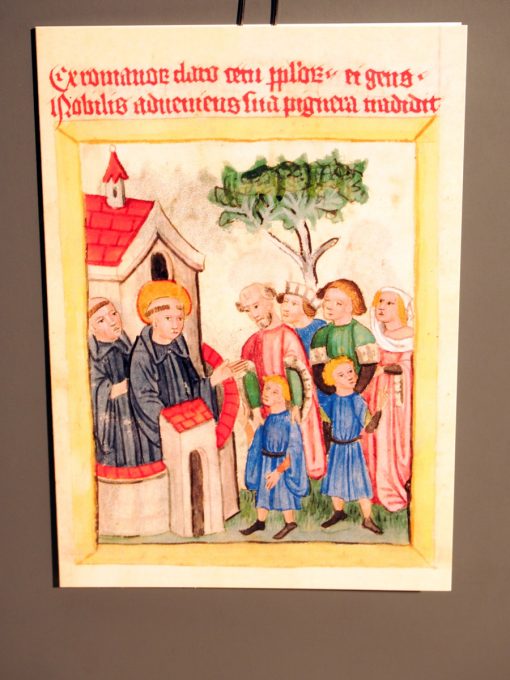 Ex romanor claro cetu pplor et gens
Nobilis adveniens sua pignera tradidit